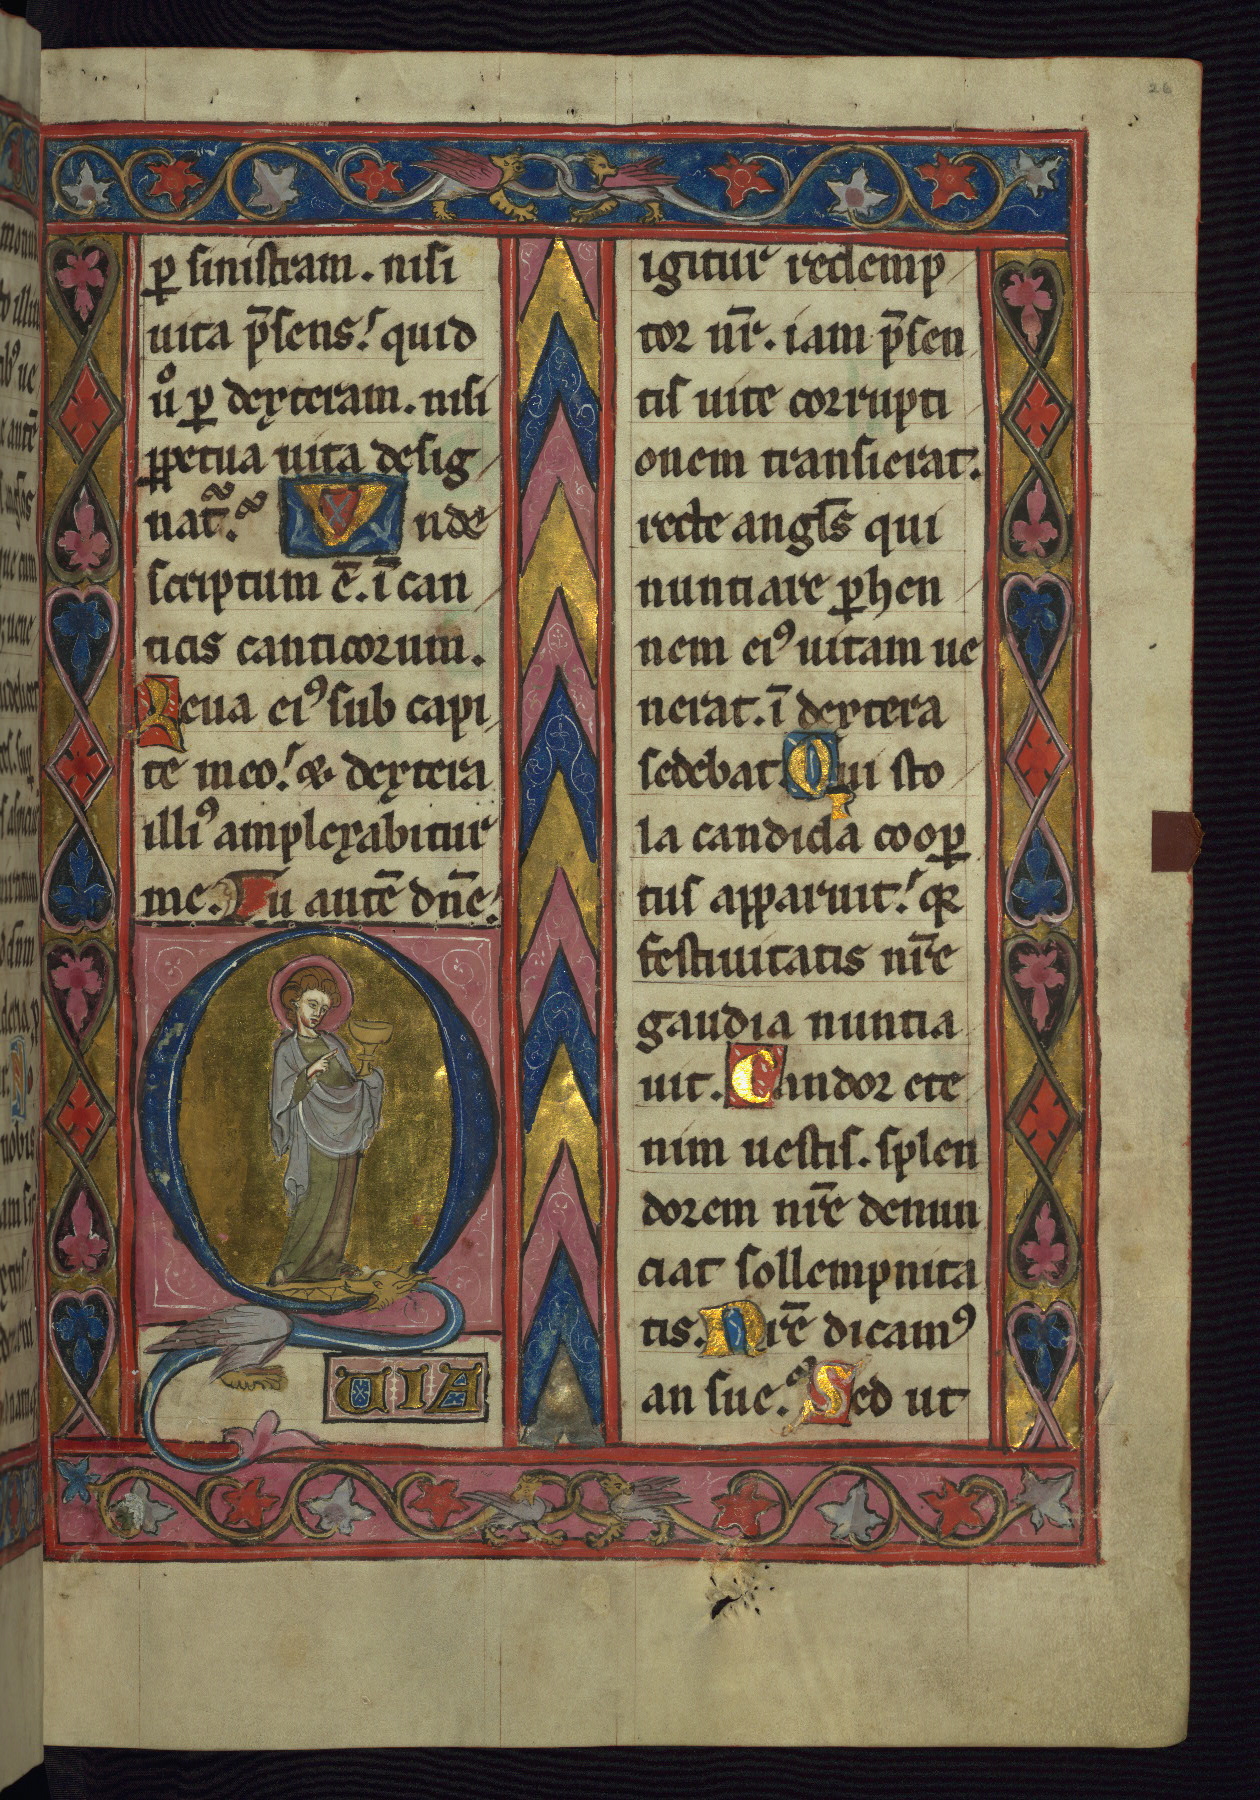 26
ꝑ siniſtram. niſi
uita p̄ſens! quid
uͦ ꝑ dexteram. niſi
ꝑpetua uita deſig
nat᷑. Vnde
ſcriptum ē. ī can
ticis canticorum.
Leua eiꝰ ſub capi
te meo! & dextera
illiꝰ amplexabitur
me. Tu autē dn̄e!
QUIA
igitur redemp
tor nr̄. iam p̄ſen
tiſ uite corrupti
onem tranſierat.
recte angl̄s qui
nuntiare ꝑhen
nem eiꝰ uitam ue
nerat. ī dextera
ſedebat. Qui ſto
la candida cooꝑ
tuſ apparuit! qꝛ
feſtiuitatis nr̄e
gaudia nuntia
uit. Candor ete
nim ueſtiſ. ſplen
dorem nr̄e denun
ciat ſollempnita
tis. Nr̄e dicamꝰ
an ſue. Sed ut